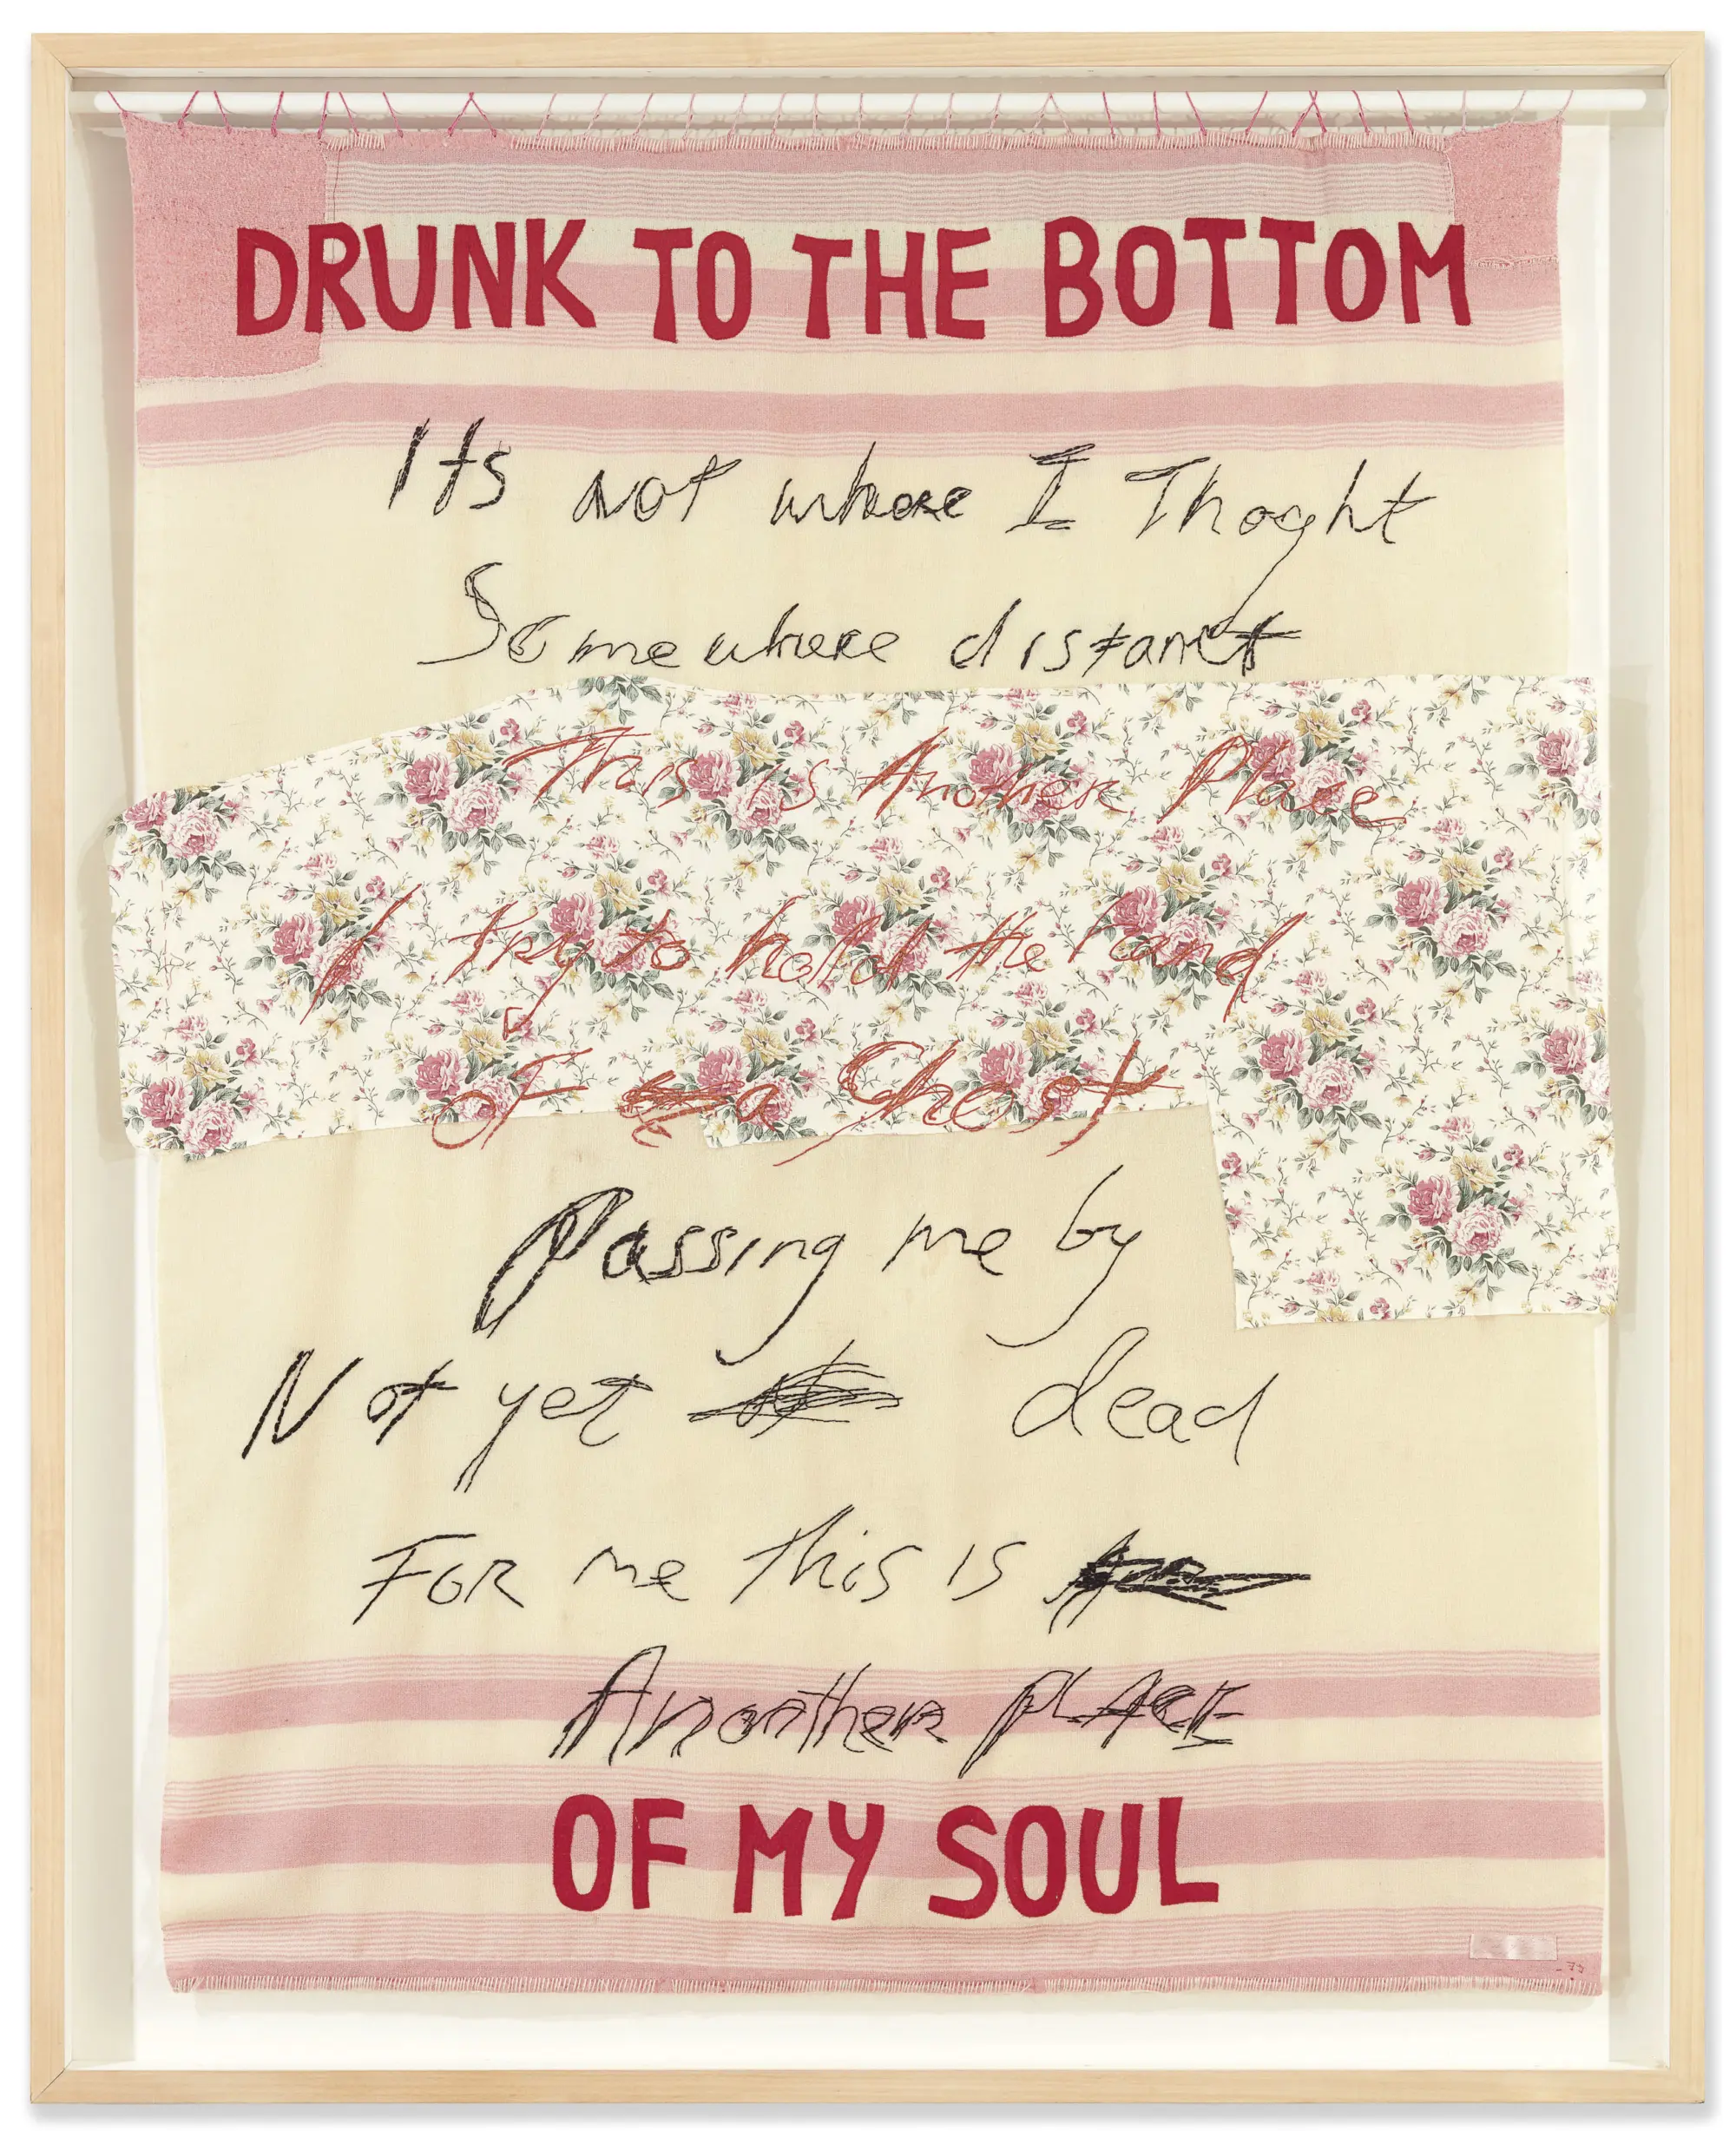 DRUNK TO THE BOTTOM
Its not where I Thoght
Somewhere distant
This is Another Place
I try to hold the hand
of a Ghost
Passing me by
Not yet dead
FOR me this is
Another PLACE
OF MY SOUL